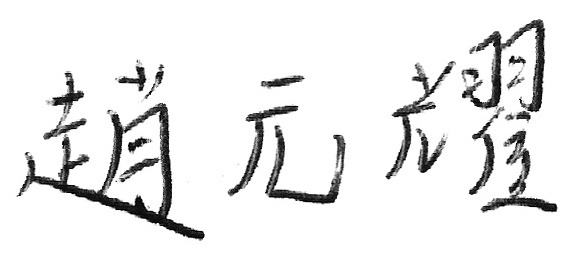 趙元耀